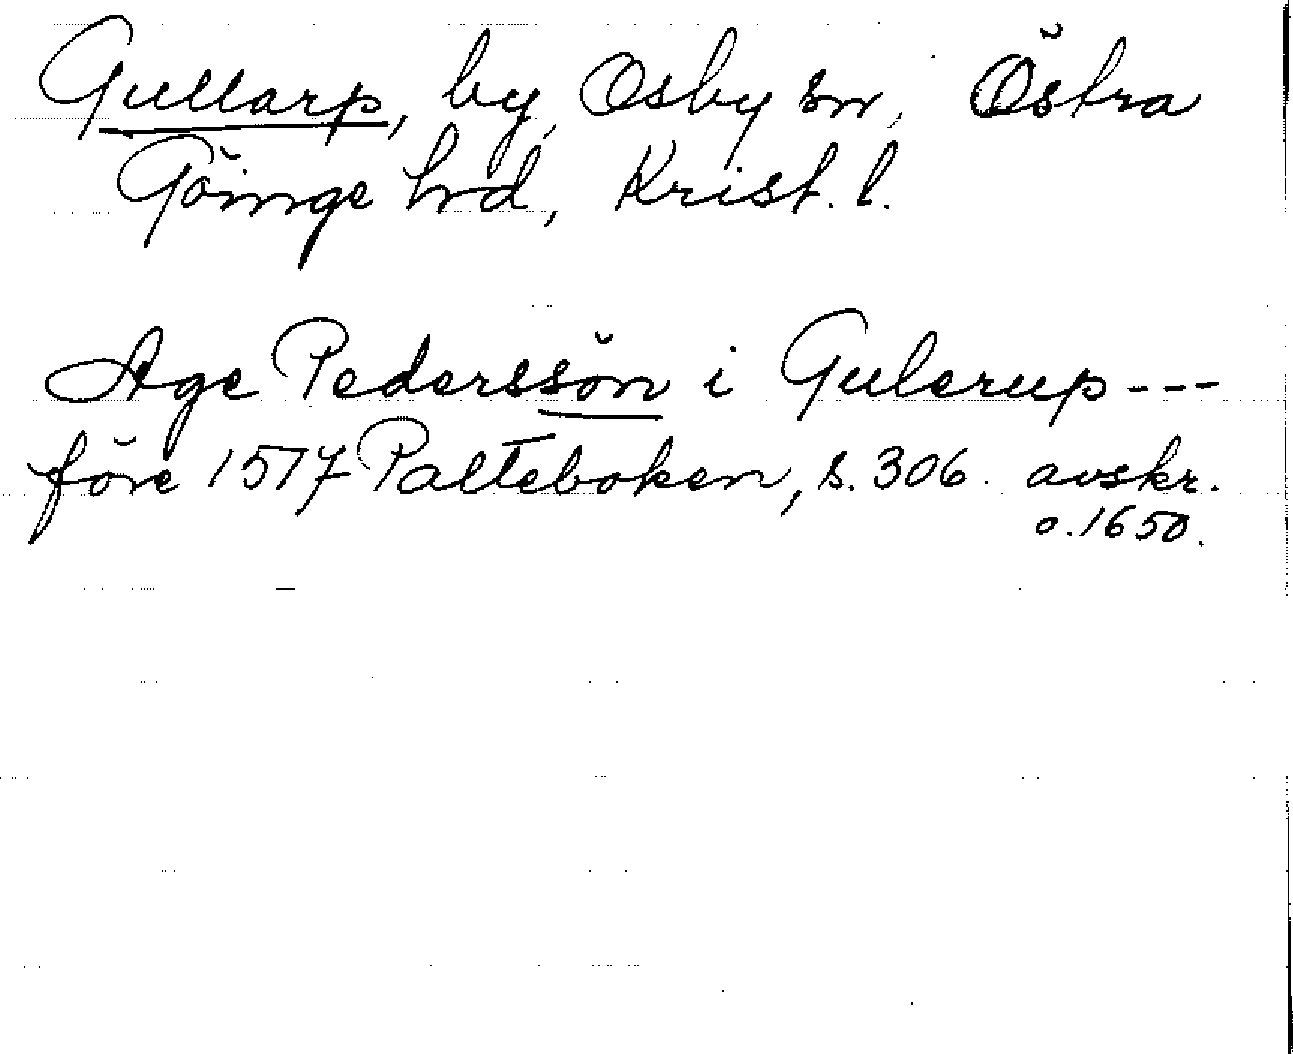 Gullarp, by, Osby sn, Östra
Göinge hrd, Krist. l.
Age Pederssön i Gulerup ---
före 1517 Palteboken, s. 306. avskr.
o. 1650.